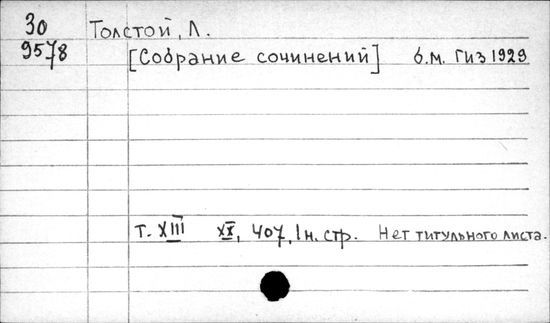 30 Толстой, Л.
9578 [Собрание сочинений] б.м. Гиз 1929
т. XIII XX, 407, 1 н. стр. Нет титульного листа.